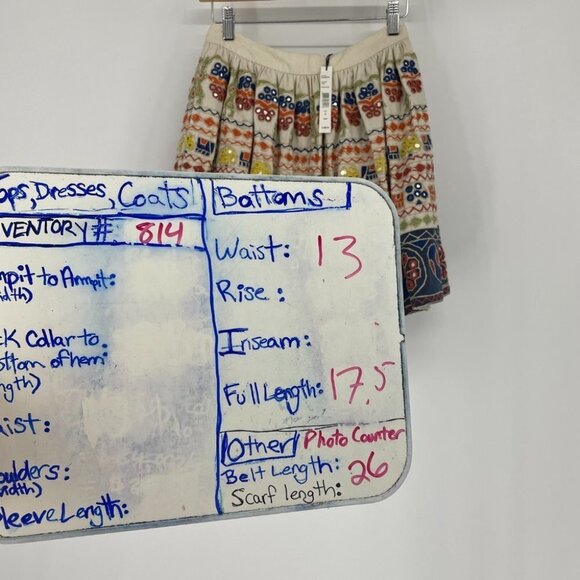 ops, Dresses, Coats
VENTORY# 814
mpit to Armpit:
idth)
ck Collar to
ottom of hem:
ngth)
aist:
oulders:
idth)
leeve Length:
Bottoms
Waist: 13
Rise:
Inseam:
Full Length: 17.5
Other Photo Counter
Belt Length: 26
Scarf length: